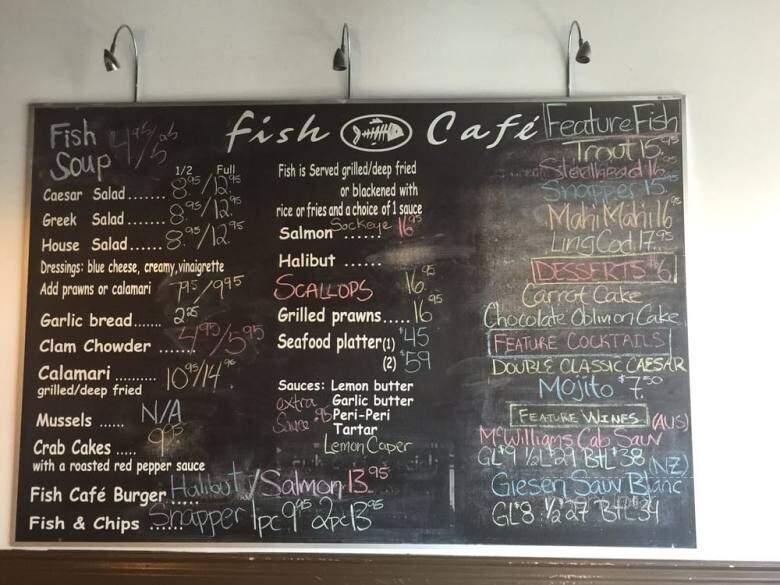 fish Café
Fish
Soup 4.95/5
1/2 Full
Caesar Salad....... 8.95/12.95
Greek Salad....... 8.95/12.95
House Salad...... 8.95/12.95
Dressings: blue cheese, creamy,vinaigrette
Add prawns or calamari 7.95/9.95
Garlic bread....... 2.25
Clam Chowder ....... 4.95/5.95
Calamari .......... 10.95/14.95
grilled/deep fried
Mussels ...... N/A
Crab Cakes ..... 9.95
with a roasted red pepper sauce
Fish Café Burger ...... Halibut/Salmon 13.95
Fish & Chips ...... Snapper 1pc 9.95 2pc 13.95
Fish is Served grilled/deep fried
or blackened with
rice or fries and a choice of 1 sauce
Salmon ...... Sockeye 16.95
Halibut ......
SCALLOPS 16.95
Grilled prawns..... 16.95
Seafood platter(1) $45
(2) $59
Sauces: Lemon butter
Garlic butter
extra Sauce .95
Peri-Peri
Tartar
Lemon Caper
Feature Fish
Trout 15.95
Steelhead 16.95
Snapper 15.95
Mahi Mahi 16.95
Ling Cod 17.95
DESSERTS $6
Carrot Cake
Chocolate Oblivion Cake
FEATURE COCKTAILS
DOUBLE CLASSIC CAESAR
Mojito $7.50
FEATURE WINES
(AUS)
McWilliams Cab Sauv
GL $9 ½L $29 BTL $38
(NZ)
Giesen Sauv Blanc
GL $8 ½ 27 BTL 34